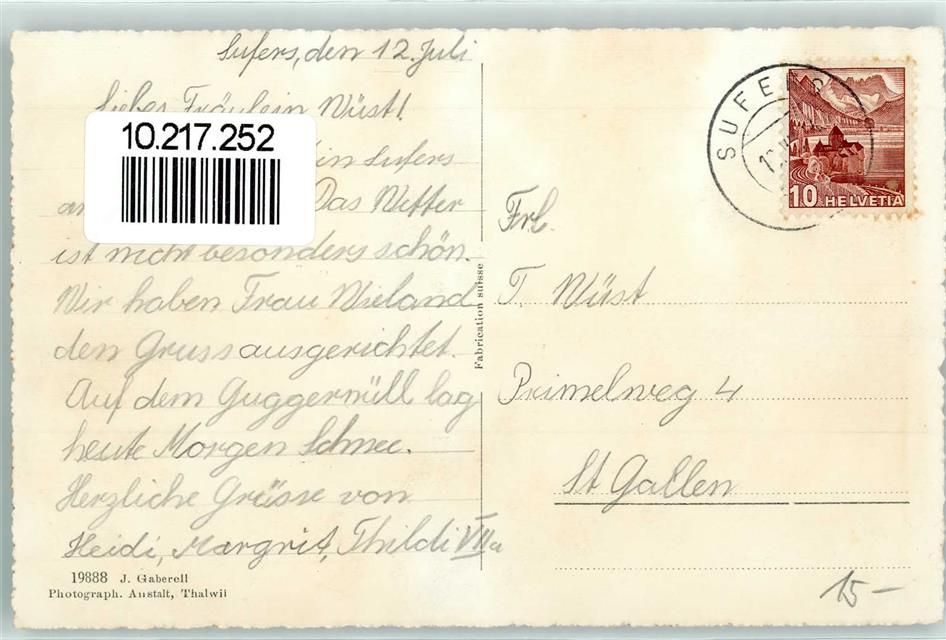 Sufers, den 12. Juli
Liebes Fräulein Wüst!
10.217.252
in Sufers
Das Wetter
ist nicht besonders schön.
Wir haben Frau Wieland
den Gruss ausgerichtet.
Auf dem Guggernüll lag
heute Morgen Schnee.
Herzliche Grüsse von
Heidi, Margrit, Thildi VIIa
19888 J. Gaberell
Photograph. Anstalt, Thalwil
Fabrication suisse
SUFERS
10 HELVETIA
Frl.
T. Wüst
Primelweg 4
St Gallen
15-